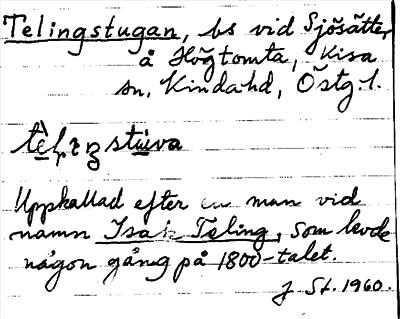 Telingstugan, bs vid Sjösätter,
å Högtomta, Kisa
sn, Kindahd, Östg. l.
Uppkallad efter en man vid
namn Isak Teling, som levde
någon gång på 1800-talet.
J St. 1960.